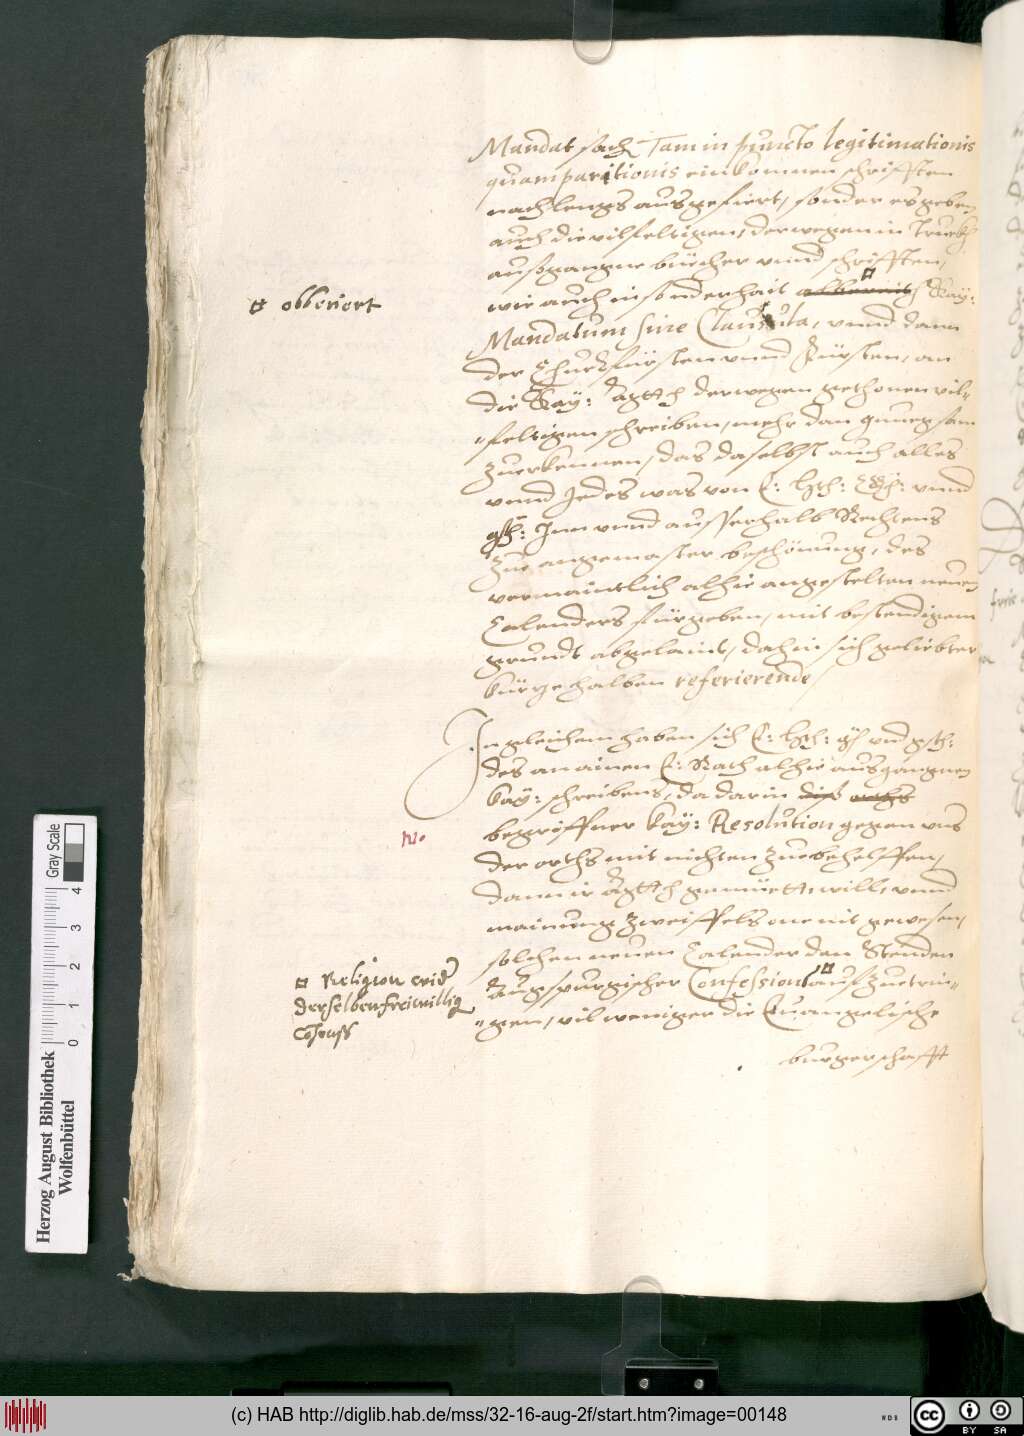 Mandat sach Tam in puncto legitimationis
quam paritionis einkomnen schrifften
nach lengs ausgefiert, sonder es geben
auch die vilfeltigen, derwegen in Truckh
außgangne büecher vnnd schrifften,
wie auch insonderhait Kay:
¤ obberiert
Mandatum sine Clausula, vnnd dann
der Churfürsten vnnd Fürsten, an
die Kay: derwegen gethonen vil-
feltigen schreiben, mehr dan gnuegsam
zuerkennen, das daselbst auch alles
vnnd Jedes was von E: vnnd
Inn vnnd ausserhalb Rechtens
zue angemaster beschönung, des
vermaintlich alhie angestelten neuen
Calenders fürgeben, mit bestendigem
grundt abgelaint, dahin sich geliebter
kürze halben referierende
Ingleichem haben sich E: vnd
des an ainen E: Rath alhie ausgangnen
Kay: schreibens, da darin
begriffner Kay: Resolution gegen vns
No
der orths mit nichten zuebehelffen,
dann ir gemüett, will, vnnd
mainung zweiffels one nit gewesen,
solchen neuen Calender den Stenden
Augspurgischer Confession auffzuetrin-
¤ Religion wider
derselben freiwillig
gen, vil weniger die Euangelische
burgerschafft
Gray Scale
0 1 2 3 4
Herzog August Bibliothek
Wolfenbüttel
(c) HAB http://diglib.hab.de/mss/32-16-aug-2f/start.htm?image=00148
cc BY SA